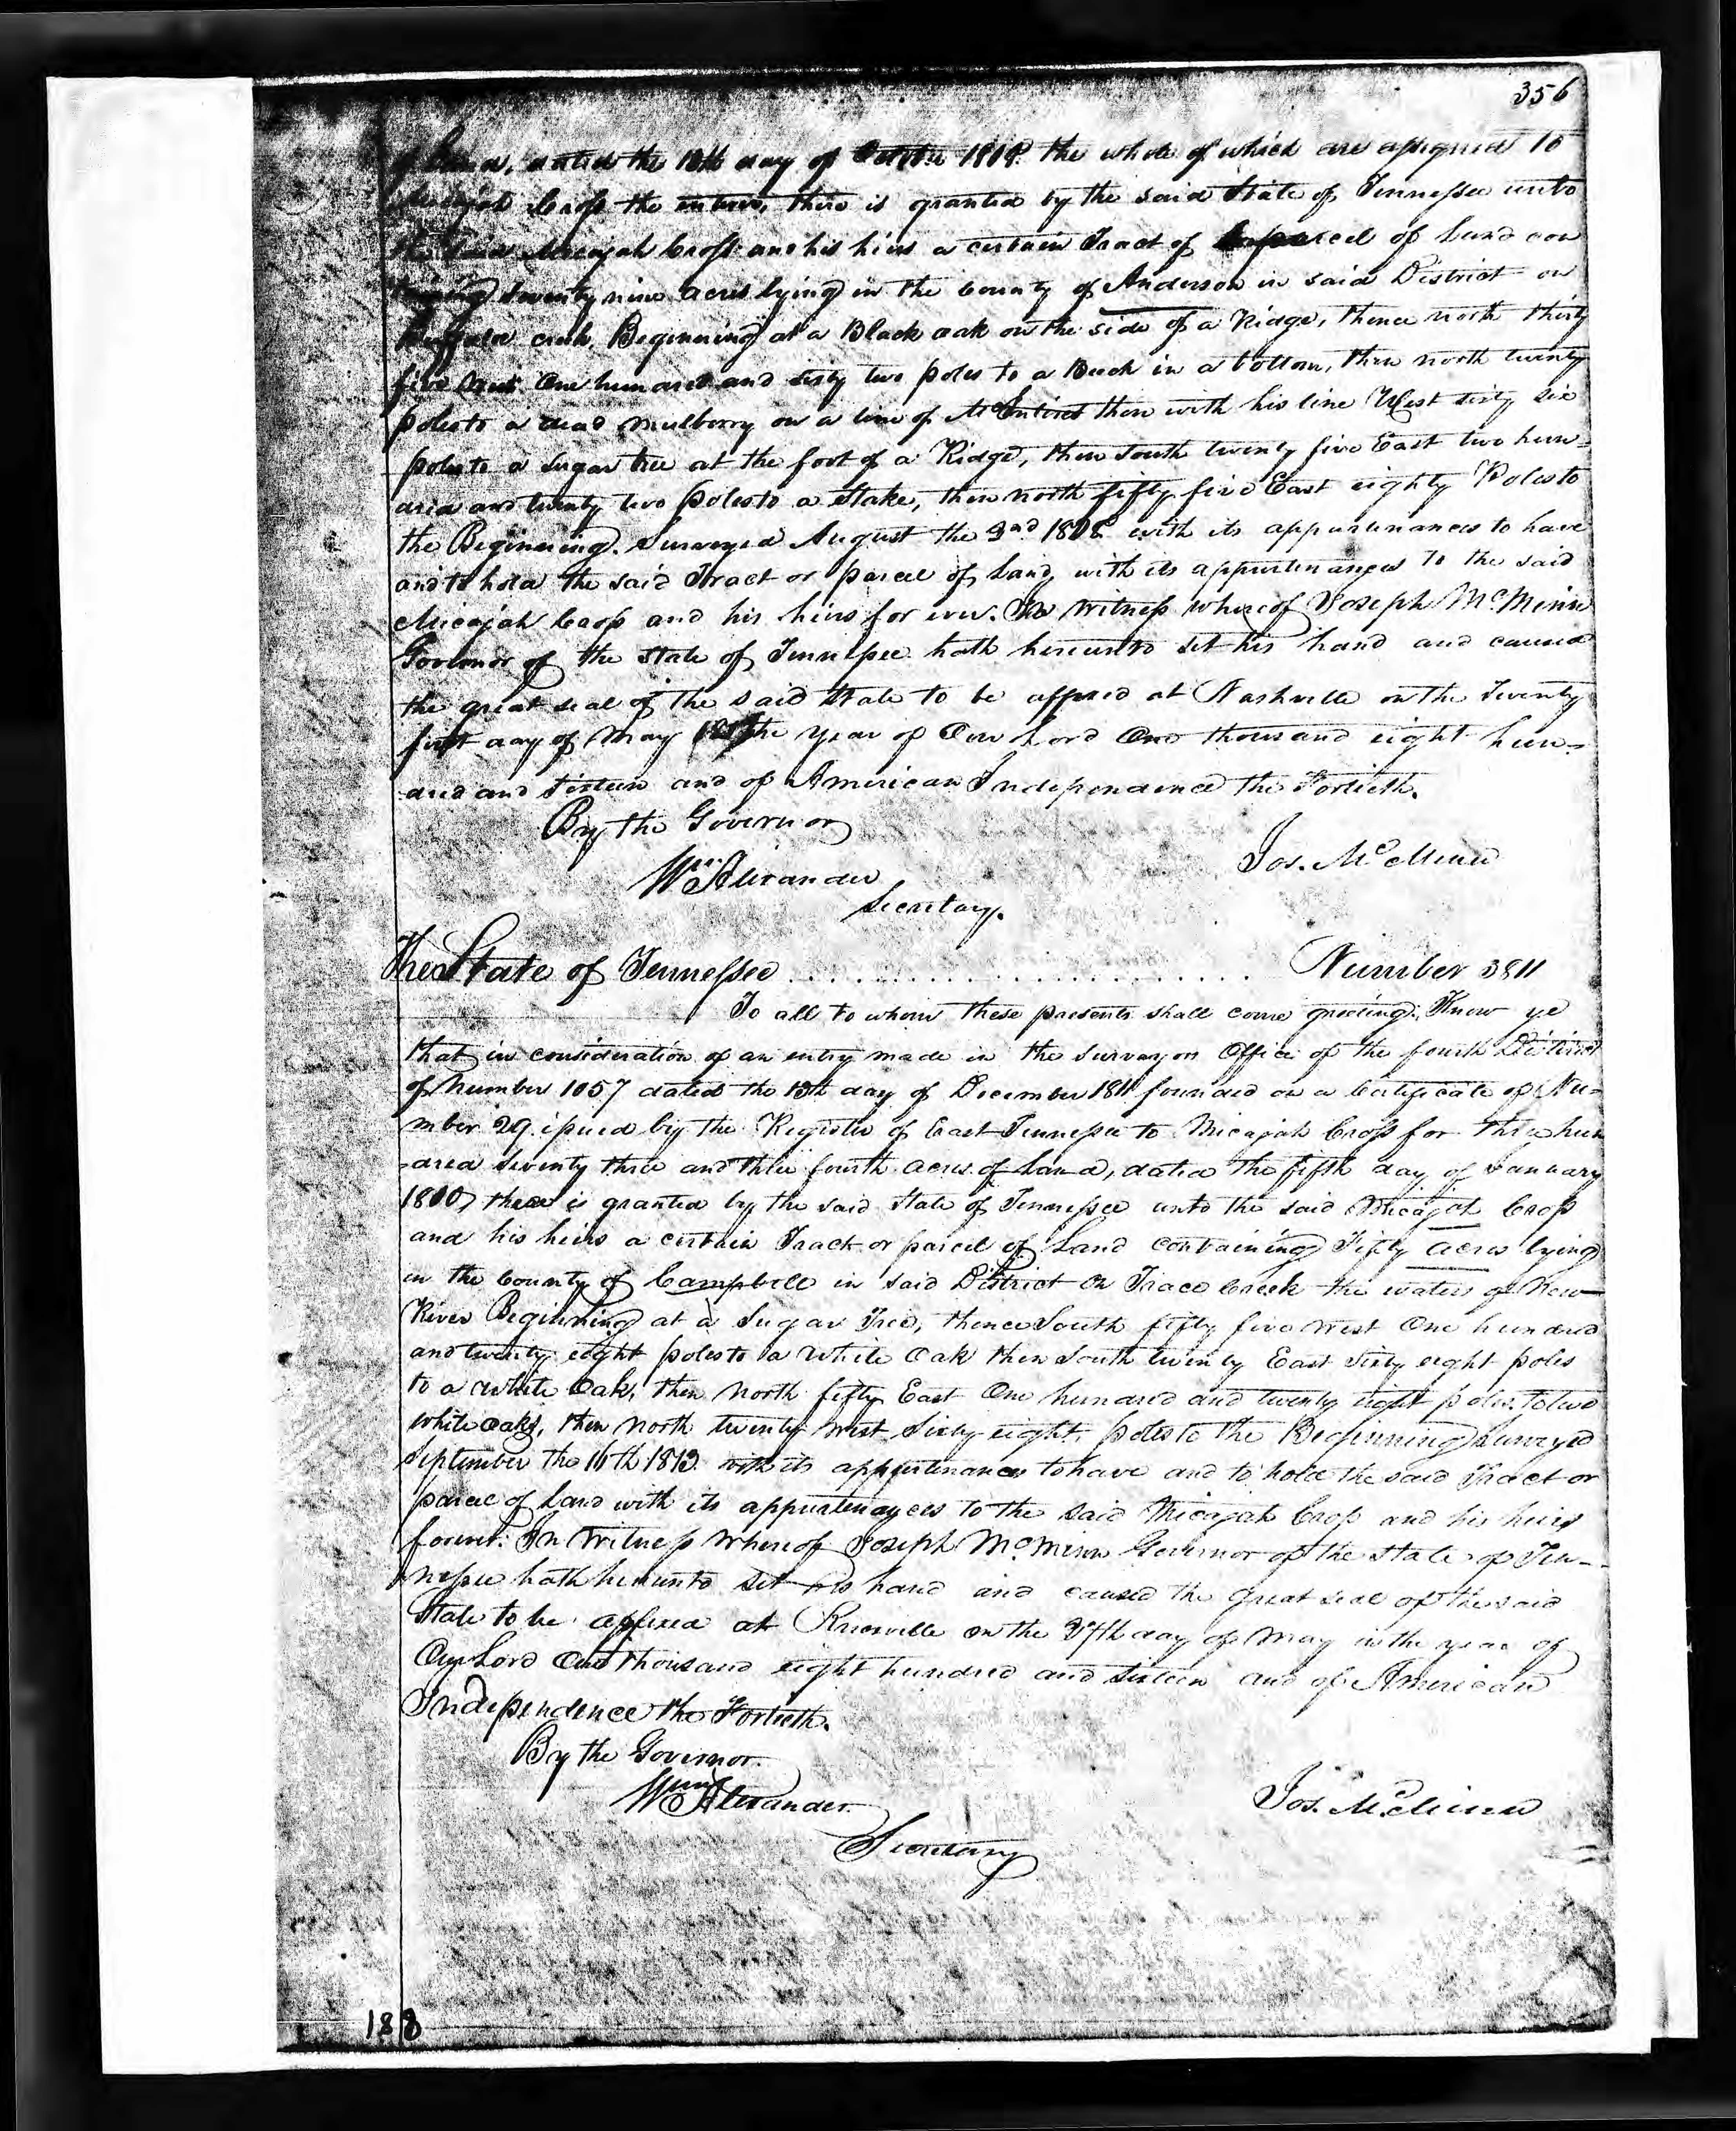 356
of Land, dated the 18th day of October 1808. the whole of which are assigned to
Micajah Cross the enterer, there is granted by the said State of Tennessee unto
the said Micajah Cross and his heirs a certain Tract of parcel of Land con
taining Seventy nine acres lying in the County of Anderson in said District on
Buffaloe creek Beginning at a Black oak on the side of a Ridge, thence north thirty
five West One hundred and sixty two poles to a Beech in a bottom, then north twenty
poles to a dead mulberry on a line of then with his line West sixty six
poles to a Sugar tree at the foot of a Ridge, then South twenty five East two hun=
dred and twenty two poles to a Stake, then north fifty five East eighty Poles to
the Beginning. Surveyed August the 3rd 1808 with its appurtenances to have
and to hold the said Tract or parcel of Land with its appurtenances to the said
Micajah Cross and his heirs for ever. In Witness whereof Joseph McMinn
Governor of the State of Tennessee hath hereunto set his hand and caused
the great seal of the said State to be affixed at Nashville on the Twenty
first day of May the Year of Our Lord One thousand eight hun=
dred and Sixteen and of American Independence the Fortieth.
By the Governor
Jos. McMinn
Wm Alexander
Secretary.
The State of Tennessee . . . . . . . . . . . . . . . . . . . . Number 3811
To all to whom these presents shall come greeting. Know ye
that in consideration of an entry made in the Surveyors Office of the fourth District
of Number 1057 dated the 13th day of December 1811 founded on a Certificate of Nu=
mber 29 issued by the Register of East Tennessee to Micajah Cross for three hun
dred seventy three and three fourth acres of Land, dated the fifth day of January
1810 there is granted by the said State of Tennessee unto the said Micajah Cross
and his heirs a certain Tract or parcel of Land containing Fifty acres lying
in the County of Campbell in said District on Trace Creek the waters of New
River Beginning at a Sugar Tree, thence South fifty five West One hundred
and twenty eight poles to a White Oak then South twenty East sixty eight poles
to a White Oak, then North fifty East One hundred and twenty eight poles to two
white oaks, then North twenty West Sixty eight poles to the Beginning Surveyed
September the 16th 1813 with its appurtenances to have and to hold the said Tract or
parcel of Land with its appurtenances to the said Micajah Cross and his heirs
forever. In Witness whereof Joseph McMinn Governor of the State of Ten=
nessee hath hereunto set his hand and caused the great seal of the said
State to be affixed at Knoxville on the 27th day of May in the year of
Our Lord One thousand eight hundred and sixteen and of American
Independence the Fortieth.
By the Governor.
Wm Alexander
Jos. McMinn
Secretary
188